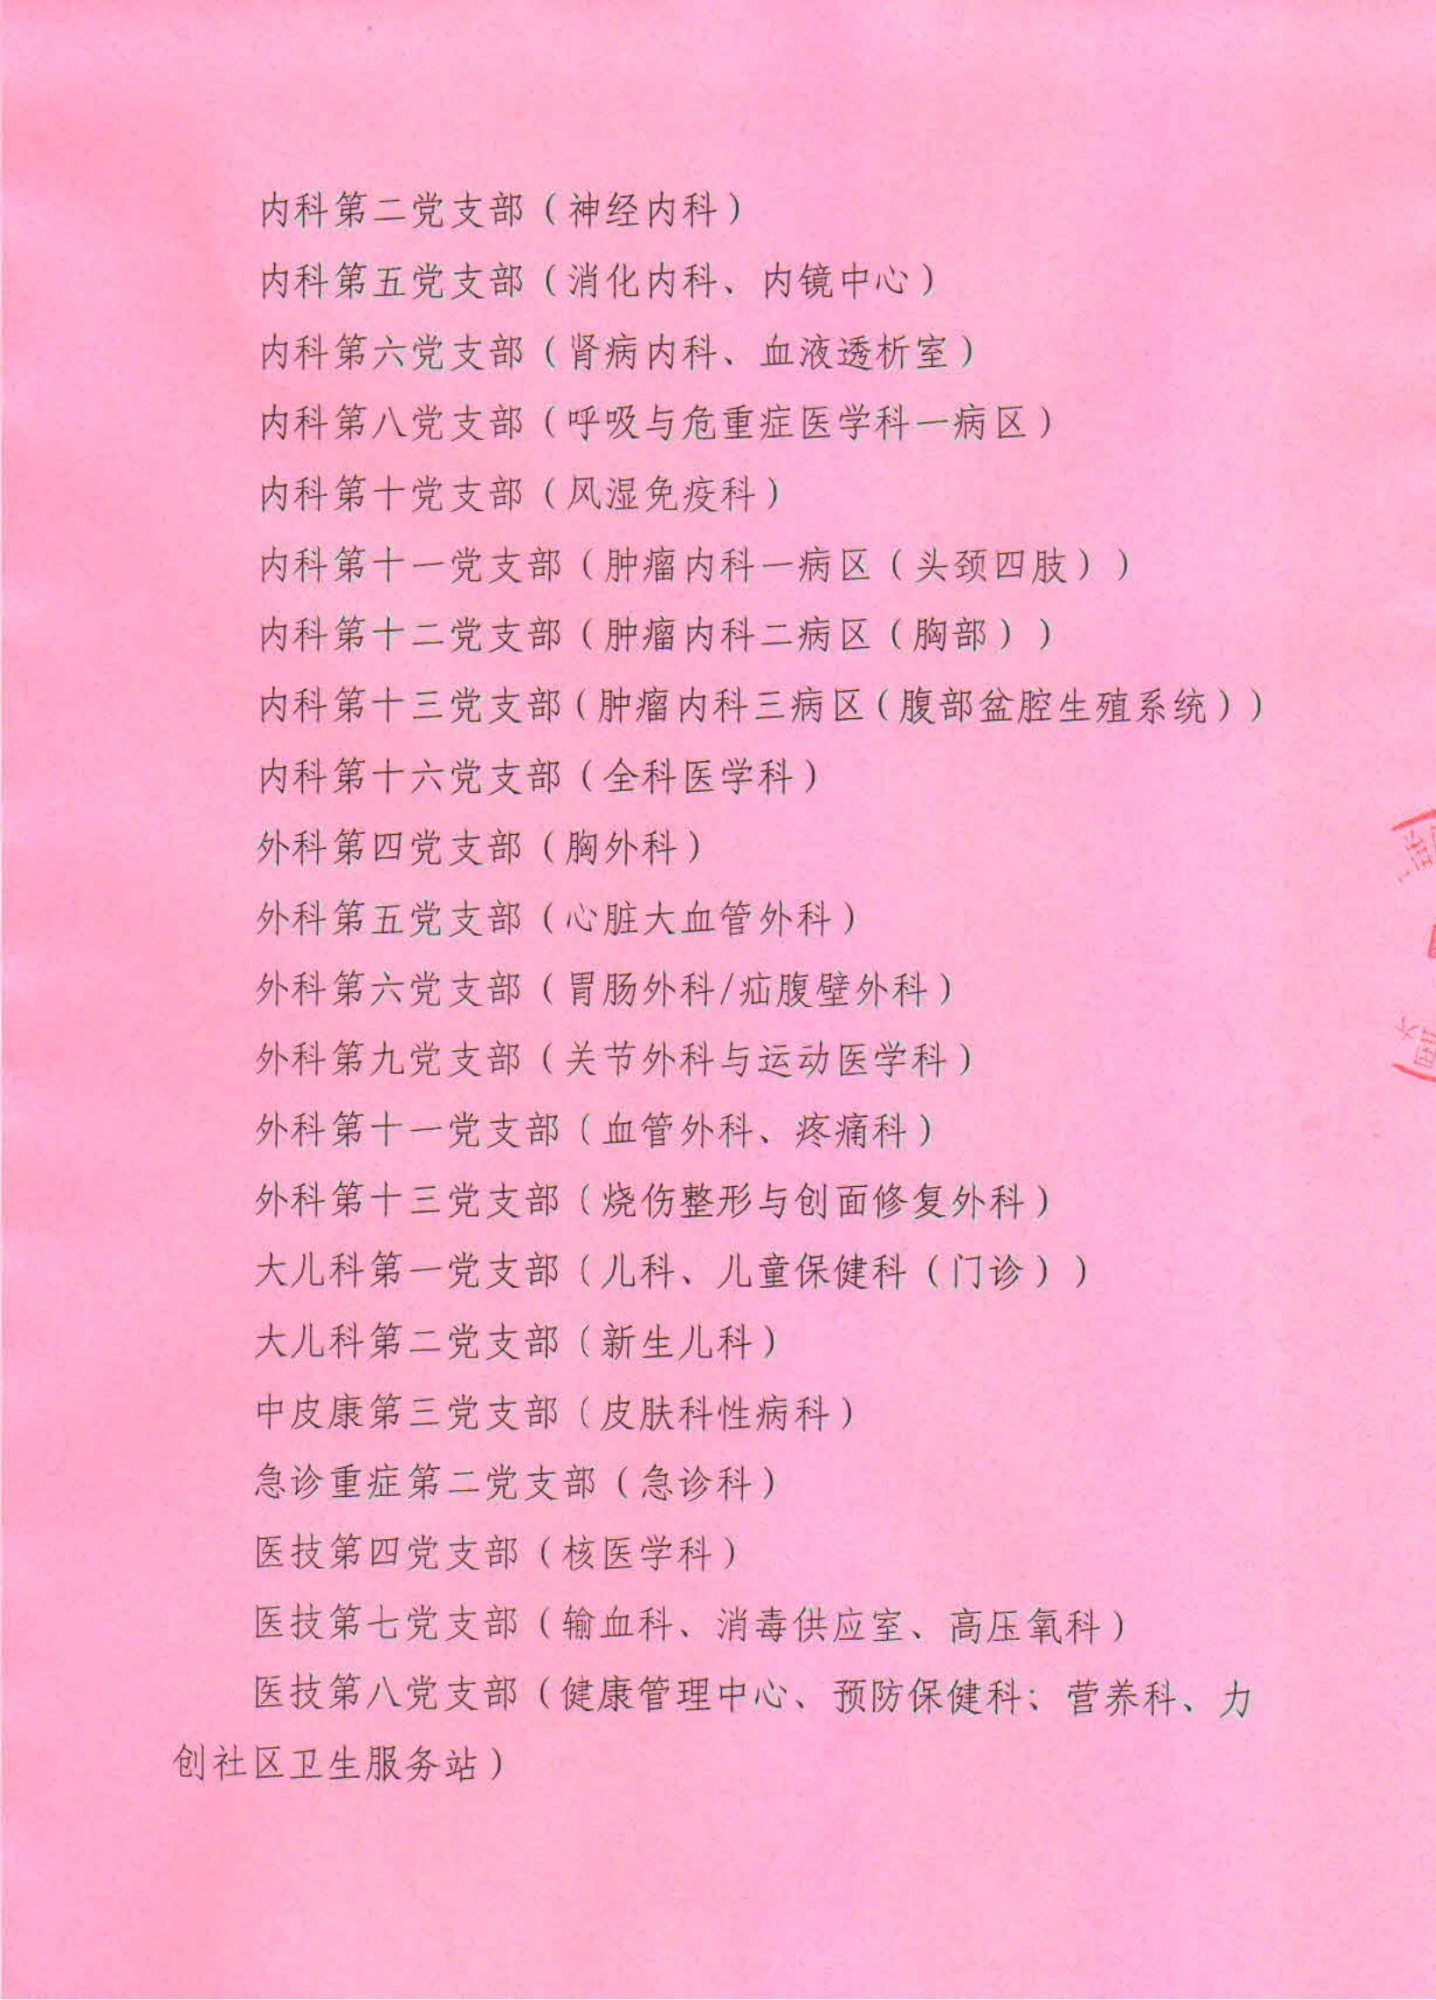 内科第二党支部（神经内科）
内科第五党支部（消化内科、内镜中心）
内科第六党支部（肾病内科、血液透析室）
内科第八党支部（呼吸与危重症医学科一病区）
内科第十党支部（风湿免疫科）
内科第十一党支部（肿瘤内科一病区（头颈四肢））
内科第十二党支部（肿瘤内科二病区（胸部））
内科第十三党支部（肿瘤内科三病区（腹部盆腔生殖系统））
内科第十六党支部（全科医学科）
外科第四党支部（胸外科）
外科第五党支部（心脏大血管外科）
外科第六党支部（胃肠外科/疝腹壁外科）
外科第九党支部（关节外科与运动医学科）
外科第十一党支部（血管外科、疼痛科）
外科第十三党支部（烧伤整形与创面修复外科）
大儿科第一党支部（儿科、儿童保健科（门诊））
大儿科第二党支部（新生儿科）
中皮康第三党支部（皮肤科性病科）
急诊重症第二党支部（急诊科）
医技第四党支部（核医学科）
医技第七党支部（输血科、消毒供应室、高压氧科）
医技第八党支部（健康管理中心、预防保健科；营养科、力
创社区卫生服务站）